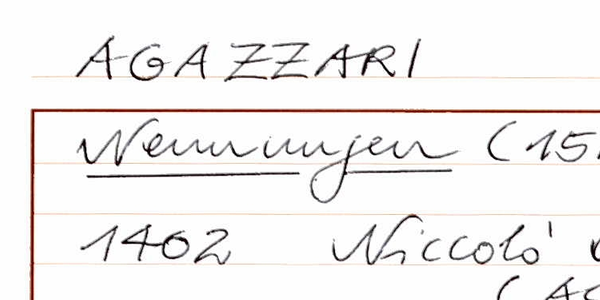 AGAZZARI
Nennungen (15
1402 Niccolò
( AG